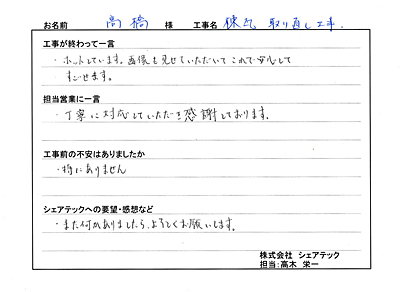 お名前 高橋 様 工事名 棟瓦 取り直し工事.
工事が終わって一言
・ホットしています。画像も見せていただいてこれで安心して
すごせます。
担当営業に一言
・丁寧に対応していただき感謝しております。
工事前の不安はありましたか
・特にありません
シェアテックへの要望・感想など
・また何かありましたら、よろしくお願いします。
株式会社 シェアテック
担当:高木 栄一